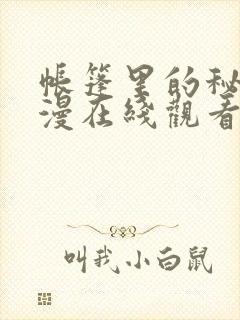 帳篷里的秘
漫在綫觀看
叫我小白鼠